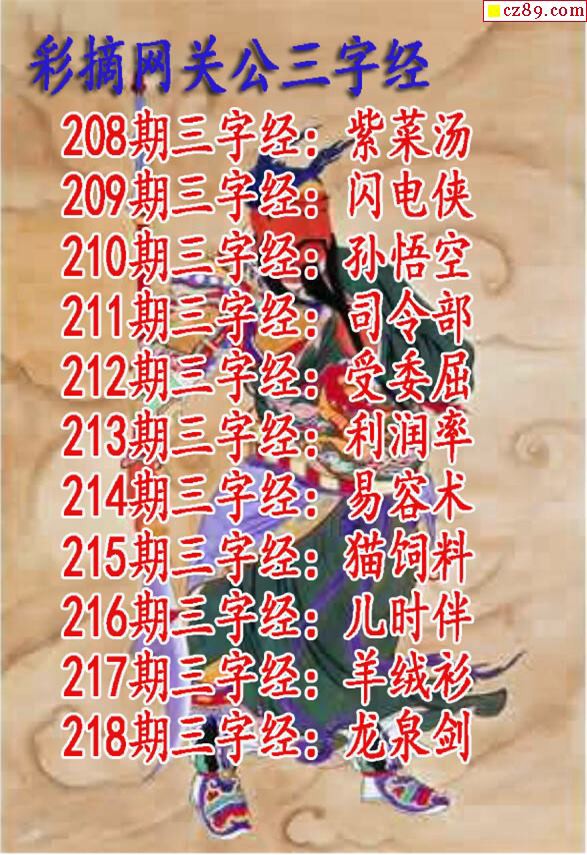 cz89.com
彩摘网关公三字经
208期三字经：紫菜汤
209期三字经：闪电侠
210期三字经：孙悟空
211期三字经：司令部
212期三字经：受委屈
213期三字经：利润率
214期三字经：易容术
215期三字经：猫饲料
216期三字经：儿时伴
217期三字经：羊绒衫
218期三字经：龙泉剑